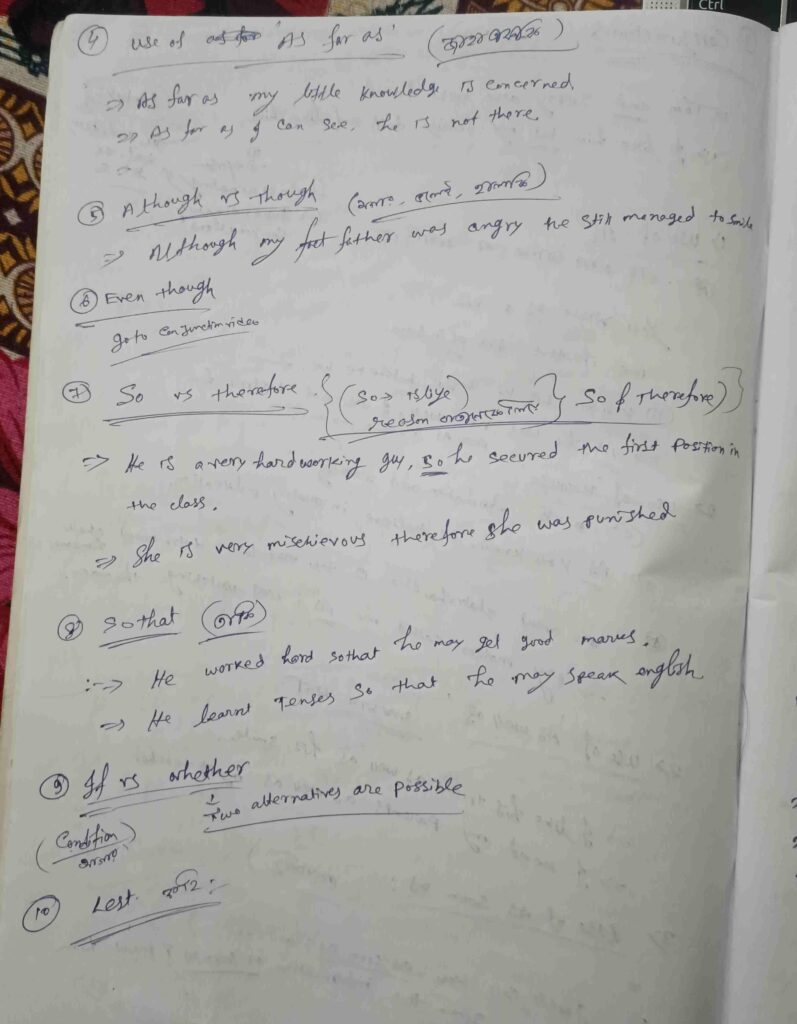 Ctrl
④ use of 'As far as'
⇒ As far as my little knowledge is concerned,
⇒ As far as I can see, he is not there,
⑤ Although vs though
⇒ Although my father was angry he still managed to smile
⑥ Even though
go to conjunction video
⑦ So vs therefore {(So→ reason } So & Therefore)}
⇒ He is a very hardworking guy, so he secured the first position in
the class.
⇒ She is very mischievous therefore she was punished
⑧ so that
⇒ He worked hard so that he may get good marks.
⇒ He learnt Tenses so that he may speak english
⑨ If vs whether
Two alternatives are possible
(Condition)
⑩ Lest